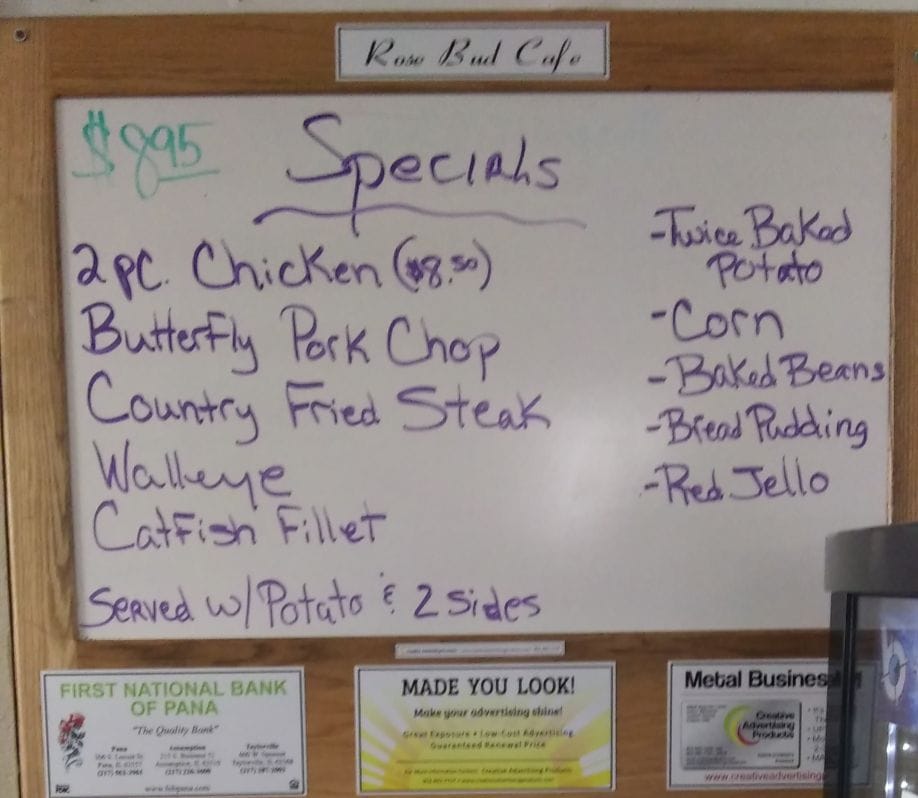 Rose Bud Cafe
$8.95
Specials
2 pc. Chicken ($8.50)
Butterfly Pork Chop
Country Fried Steak
Walleye
Catfish Fillet
Served w/Potato & 2 Sides
-Twice Baked
Potato
-Corn
-Baked Beans
-Bread Pudding
-Red Jello
FIRST NATIONAL BANK
OF PANA
"The Quality Bank"
Pana
Assumption
Taylorville
www.fnbpana.com
MADE YOU LOOK!
Make your advertising shine!
Great Exposure • Low-Cost Advertising
Guaranteed Renewal Price
Metal Business
Creative
Advertising
Products
www.creativeadvertising